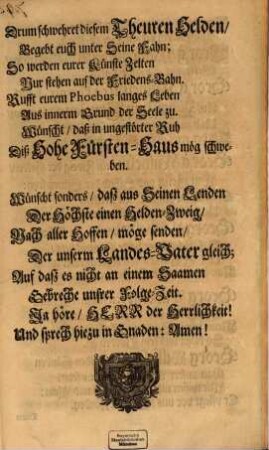 Drum schwehret diesem Theuren Helden/
Begebt euch unter Seine Fahn;
So werden eurer Künste Zelten
Nur stehen auf der Friedens-Bahn.
Rufft eurem Phoebus langes Leben
Aus innerm Grund der Seele zu.
Wünscht/ daß in ungestörter Ruh
Diß Hohe Fürsten-Haus mög schwe-
ben.
Wünscht sonders/ daß aus Seinen Lenden
Der Höchste einen Helden-Zweig/
Nach aller Hoffen/ möge senden/
Der unserm Landes-Vater gleich;
Auf daß es nicht an einem Saamen
Gebreche unsrer Folge-Zeit.
Ja höre/ HERR der Herrlichkeit!
Und sprech hiezu in Gnaden: Amen!
Bayerische
Staatsbibliothek
München